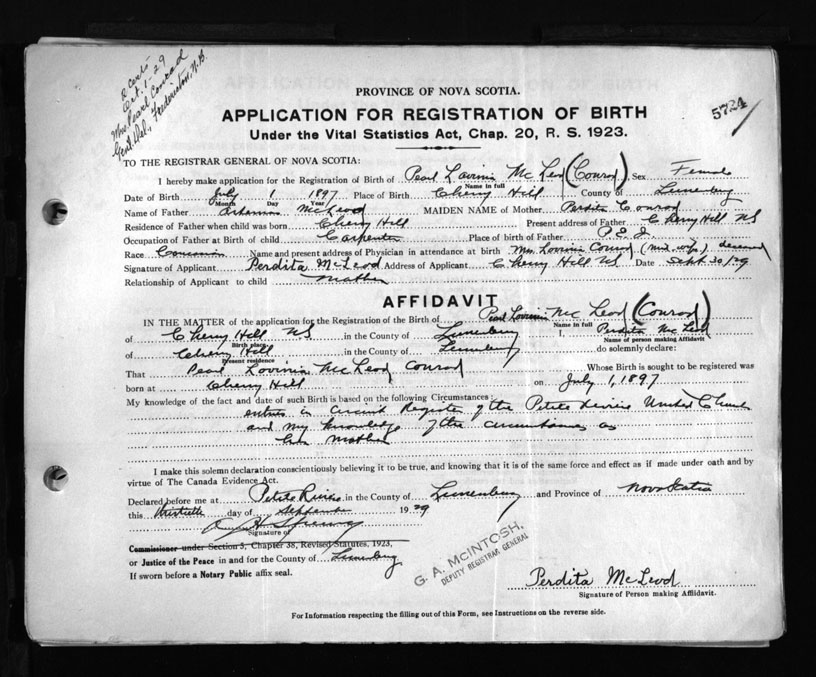 2 Certs
Oct. 1-29
Mrs Pearl Conrad
Genl. Del., Fredericton, N.B.
PROVINCE OF NOVA SCOTIA.
5724
APPLICATION FOR REGISTRATION OF BIRTH
Under the Vital Statistics Act, Chap. 20, R. S. 1923.
TO THE REGISTRAR GENERAL OF NOVA SCOTIA:
I hereby make application for the Registration of Birth of Pearl Lovinia McLeod (Conrad) Sex Female
Name in full
Date of Birth July 1 1897 Place of Birth Cherry Hill County of Lunenburg
Month Day Year
Name of Father McLeod MAIDEN NAME of Mother Perdita Conrad
Residence of Father when child was born Cherry Hill Present address of Father Cherry Hill NS
Occupation of Father at Birth of child Carpenter Place of birth of Father P.E.I.
Race Name and present address of Physician in attendance at birth Mrs Lovinia Conrad (mid wife) deceased
Signature of Applicant Perdita McLeod Address of Applicant Cherry Hill NS Date Sept 30/29
Relationship of Applicant to child Mother
AFFIDAVIT
IN THE MATTER of the application for the Registration of the Birth of Pearl Lovinia McLeod (Conrad)
Name in full
of Cherry Hill NS in the County of Lunenburg I, Perdita McLeod
Birth place Name of person making Affidavit
of Cherry Hill in the County of Lunenburg do solemnly declare:
Present residence
That Pearl Lovinia McLeod Conrad Whose Birth is sought to be registered was
born at Cherry Hill on July 1, 1897
My knowledge of the fact and date of such Birth is based on the following Circumstances:
entries in Circuit Register of the Petite Riviere United Church
and my knowledge of the circumstances as
her mother
I make this solemn declaration conscientiously believing it to be true, and knowing that it is of the same force and effect as if made under oath and by
virtue of The Canada Evidence Act.
Declared before me at Petite Riviere in the County of Lunenburg and Province of Nova Scotia
this thirtieth day of September 1929
Signature of
Commissioner under Section 3, Chapter 38, Revised Statutes, 1923,
or Justice of the Peace in and for the County of Lunenburg
If sworn before a Notary Public affix seal.
G. A. McINTOSH,
DEPUTY REGISTRAR GENERAL
Perdita McLeod
Signature of Person making Affidavit.
For Information respecting the filling out of this Form, see Instructions on the reverse side.